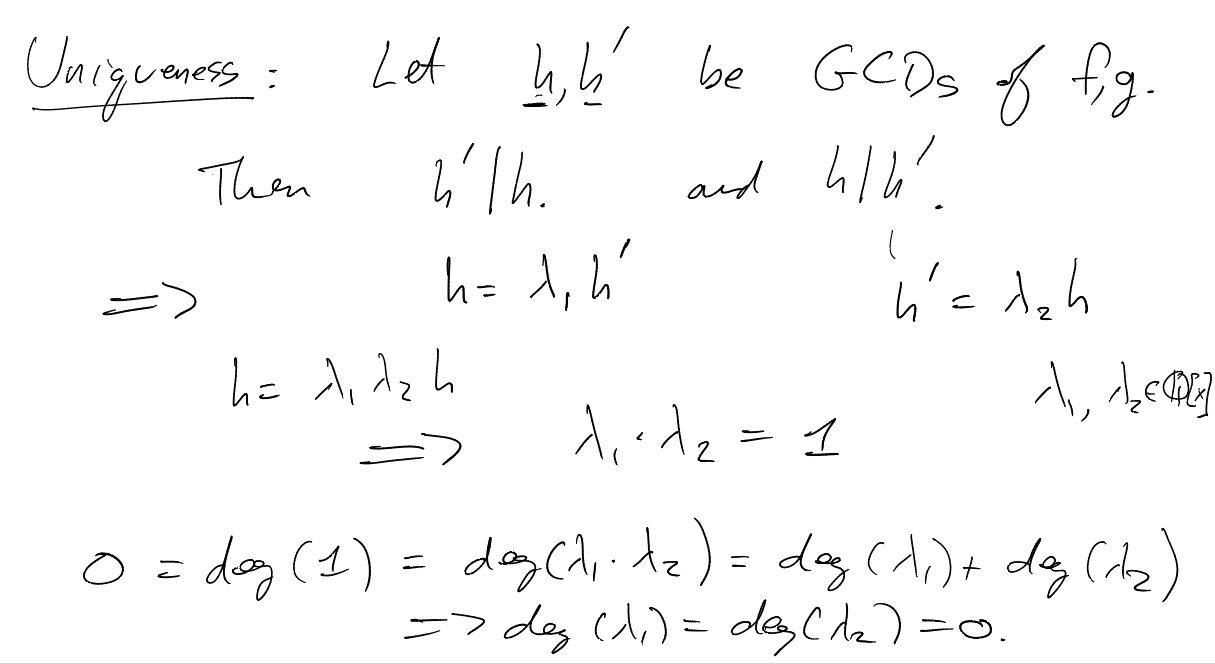 Uniqueness: Let h, h' be GCDs of f,g.
Then h'/h. and h/h'.
=> h = λ₁ h' h' = λ₂ h
h = λ₁ λ₂ h λ₁, λ₂ ∈ Q[x]
=> λ₁ · λ₂ = 1
0 = deg(1) = deg(λ₁ · λ₂) = deg(λ₁) + deg(λ₂)
=> deg(λ₁) = deg(λ₂) = 0.